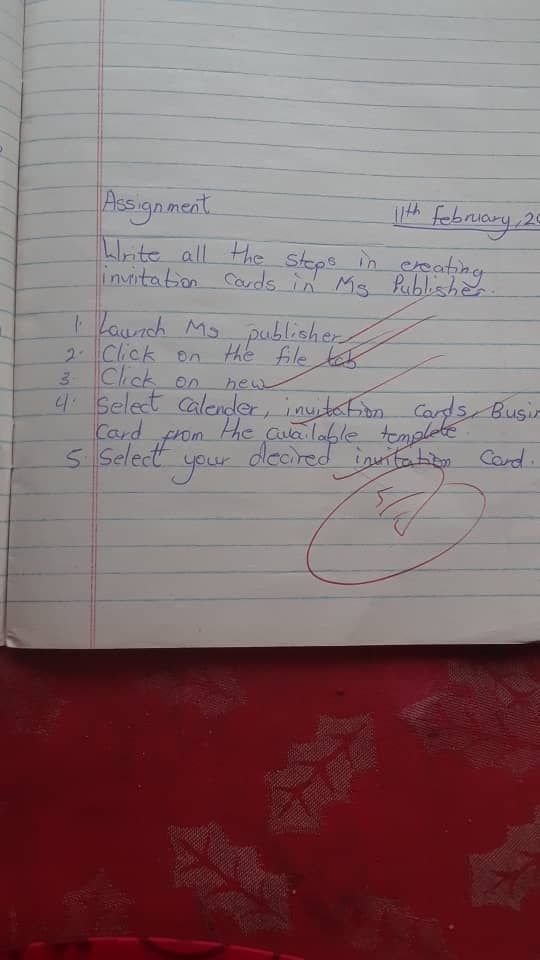 Assignment
11th February, 20
Write all the steps in creating
invitation cards in Ms Publisher.
1. Launch Ms publisher
2. Click on the file tab
3. Click on new
4. Select Calender, invitation cards, Busin
Card from the available templete.
5. Select your decired invitation Card.
5